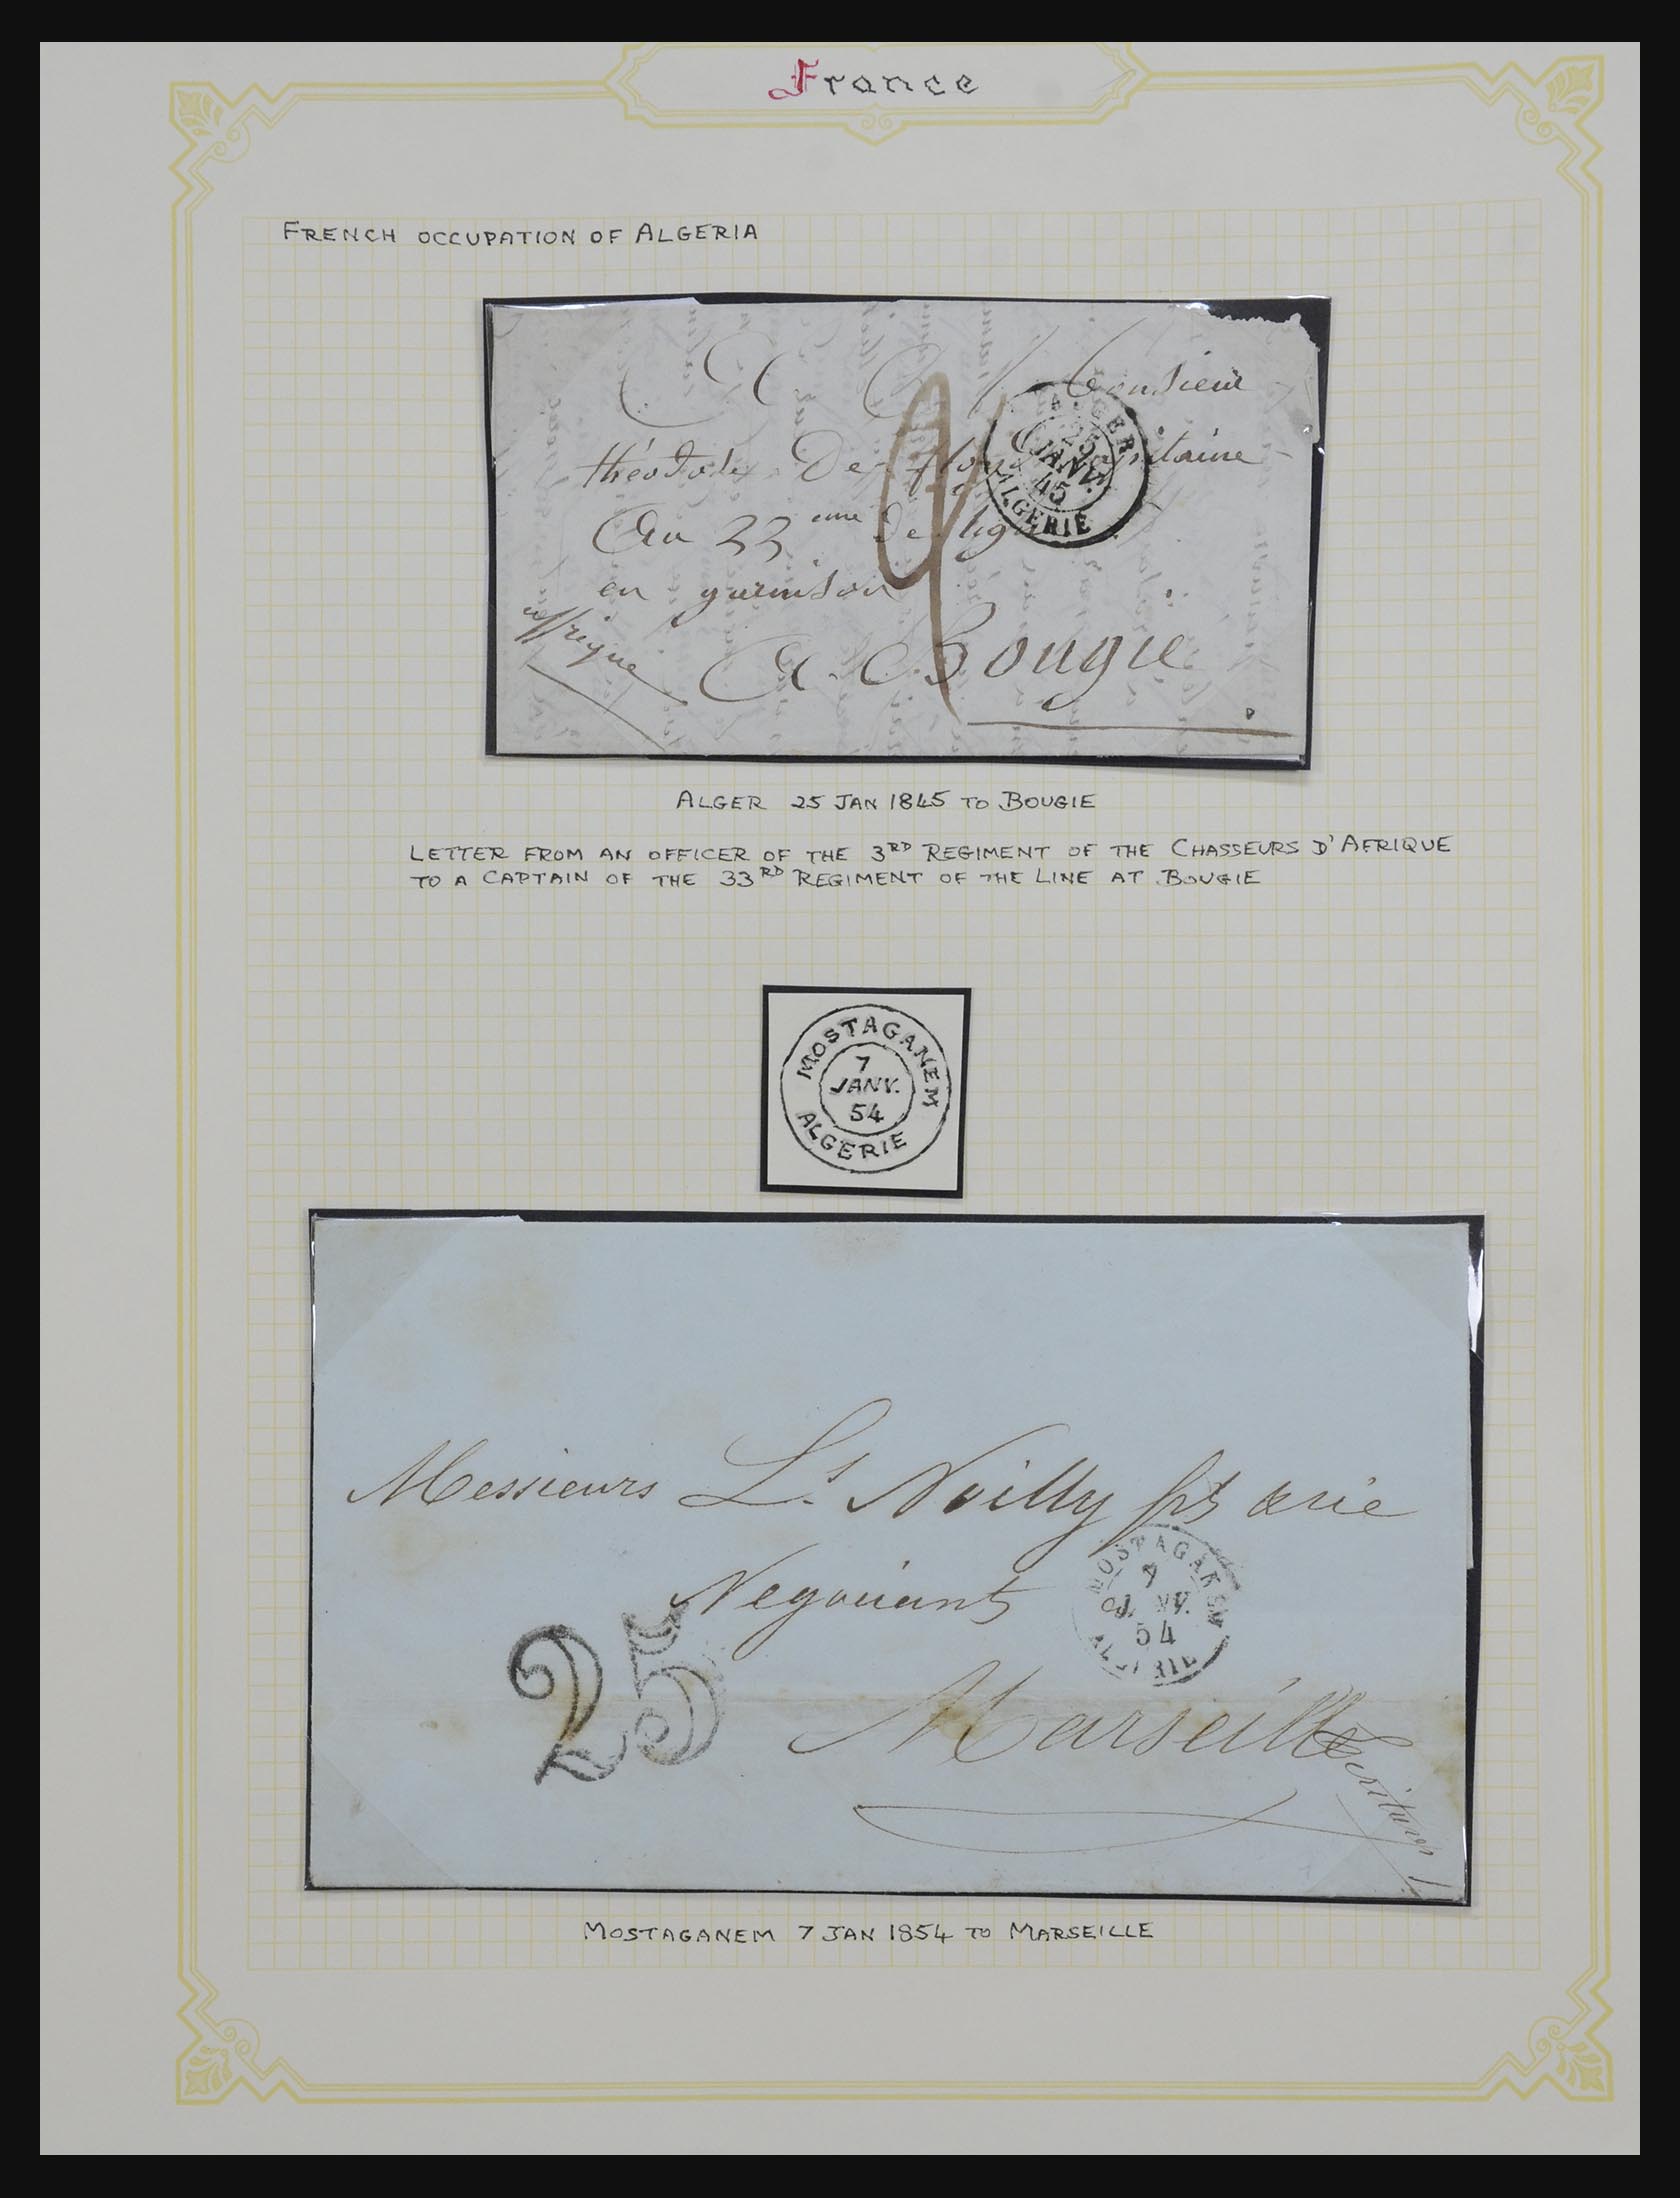 France
FRENCH OCCUPATION OF ALGERIA
Monsieur
théodore De capitaine
Au 33 eme De ligne
en garnison
affrique
A Bougie
ALGER
25
JANV.
45
ALGERIE
ALGER 25 JAN 1845 TO BOUGIE
LETTER FROM AN OFFICER OF THE 3RD REGIMENT OF THE CHASSEURS D'AFRIQUE
TO A CAPTAIN OF THE 33RD REGIMENT OF THE LINE AT BOUGIE
MOSTAGANEM
7
JANV.
54
ALGERIE
Messieurs Ls Noilly fils & cie
Negociants
MOSTAGANEM
7
JANV.
54
ALGERIE
25
Marseille
MOSTAGANEM 7 JAN 1854 TO MARSEILLE